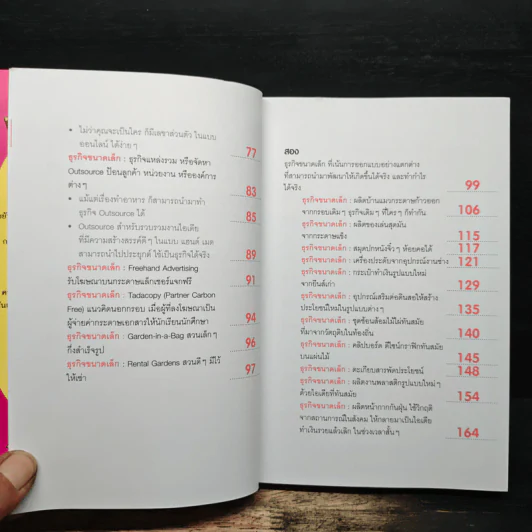 • ไม่ว่าคุณจะเป็นใคร ก็มีเลขาส่วนตัว ในแบบ
ออนไลน์ ได้ง่าย ๆ 77
ธุรกิจขนาดเล็ก : ธุรกิจแหล่งรวม หรือจัดหา
Outsource ป้อนลูกค้า หน่วยงาน หรือองค์การ
ต่าง ๆ 83
• แม้แต่เรื่องทำอาหาร ก็สามารถนำมาทำ
ธุรกิจ Outsource ได้ 85
• Outsource สำหรับรวบรวมงานไอเดีย
ที่มีความสร้างสรรค์ดี ๆ ในแบบ แฮนด์ เมด
สามารถนำไปประยุกต์ ใช้เป็นธุรกิจได้จริง 89
ธุรกิจขนาดเล็ก : Freehand Advertising
รับโฆษณาบนกระดาษเล็กเชอร์แจกฟรี 91
ธุรกิจขนาดเล็ก : Tadacopy (Partner Carbon
Free) แนวคิดนอกกรอบ เมื่อผู้ที่ลงโฆษณาเป็น
ผู้จ่ายค่ากระดาษเอกสารให้นักเรียนนักศึกษา 94
ธุรกิจขนาดเล็ก : Garden-in-a-Bag สวนเล็ก ๆ
กึ่งสำเร็จรูป 96
ธุรกิจขนาดเล็ก : Rental Gardens สวนดี ๆ มีไว้
ให้เช่า 97
สอง
ธุรกิจขนาดเล็ก ที่เน้นการออกแบบอย่างแตกต่าง
ที่สามารถนำมาพัฒนาให้เกิดขึ้นได้จริง และทำกำไร
ได้จริง 99
ธุรกิจขนาดเล็ก : ผลิตบ้านแมวกระดาษก้าวออก
จากกรอบเดิม ๆ ธุรกิจเดิม ๆ ที่ใคร ๆ ก็ทำกัน 106
ธุรกิจขนาดเล็ก : ผลิตของเล่นสุดมัน
จากกระดาษแข็ง 115
ธุรกิจขนาดเล็ก : สมุดปกหนังจิ๋ว ๆ ห้อยคอได้ 117
ธุรกิจขนาดเล็ก : เครื่องประดับจากอุปกรณ์งานช่าง 121
ธุรกิจขนาดเล็ก : กระเป๋าทำเงินรูปแบบใหม่
จากยีนส์เก่า 129
ธุรกิจขนาดเล็ก : อุปกรณ์เสริมต่อดินสอให้สร้าง
ประโยชน์ใหม่ในรูปแบบต่าง ๆ 135
ธุรกิจขนาดเล็ก : ชุดช้อนส้อมไม้ไผ่ทันสมัย
ที่มาจากวัตถุดิบในท้องถิ่น 140
ธุรกิจขนาดเล็ก : คลิปบอร์ด ดีไซน์กราฟิกทันสมัย
บนแผ่นไม้ 145
ธุรกิจขนาดเล็ก : ตะเกียบสารพัดประโยชน์ 148
ธุรกิจขนาดเล็ก : ผลิตงานพลาสติกรูปแบบใหม่ ๆ
ด้วยไอเดียที่ทันสมัย 154
ธุรกิจขนาดเล็ก : ผลิตหน้ากากกันฝุ่น ใช้วิกฤติ
จากสถานการณ์ในสังคม ให้กลายมาเป็นไอเดีย
ทำเงินรวยแล้วเลิก ในช่วงเวลาสั้น ๆ 164